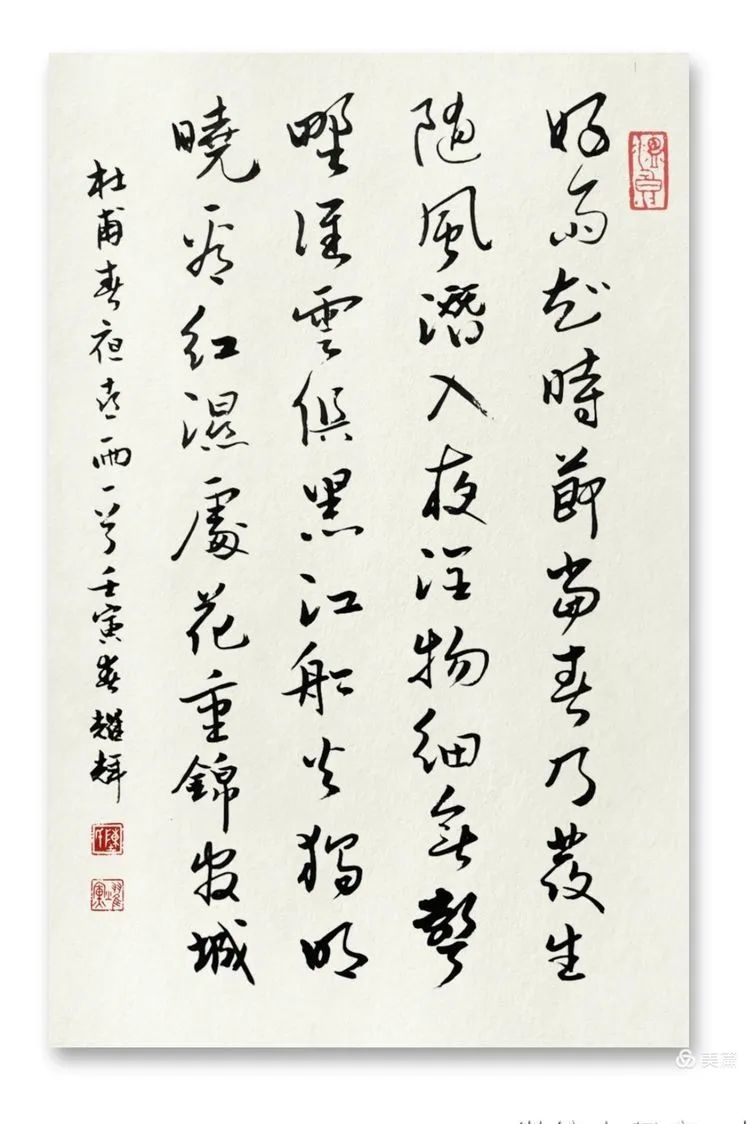 好雨知時節當春乃發生
隨風潛入夜潤物細無聲
野徑雲俱黑江船火獨明
曉看紅濕處花重錦官城
杜甫春夜喜雨一首壬寅春耀輝
美篇